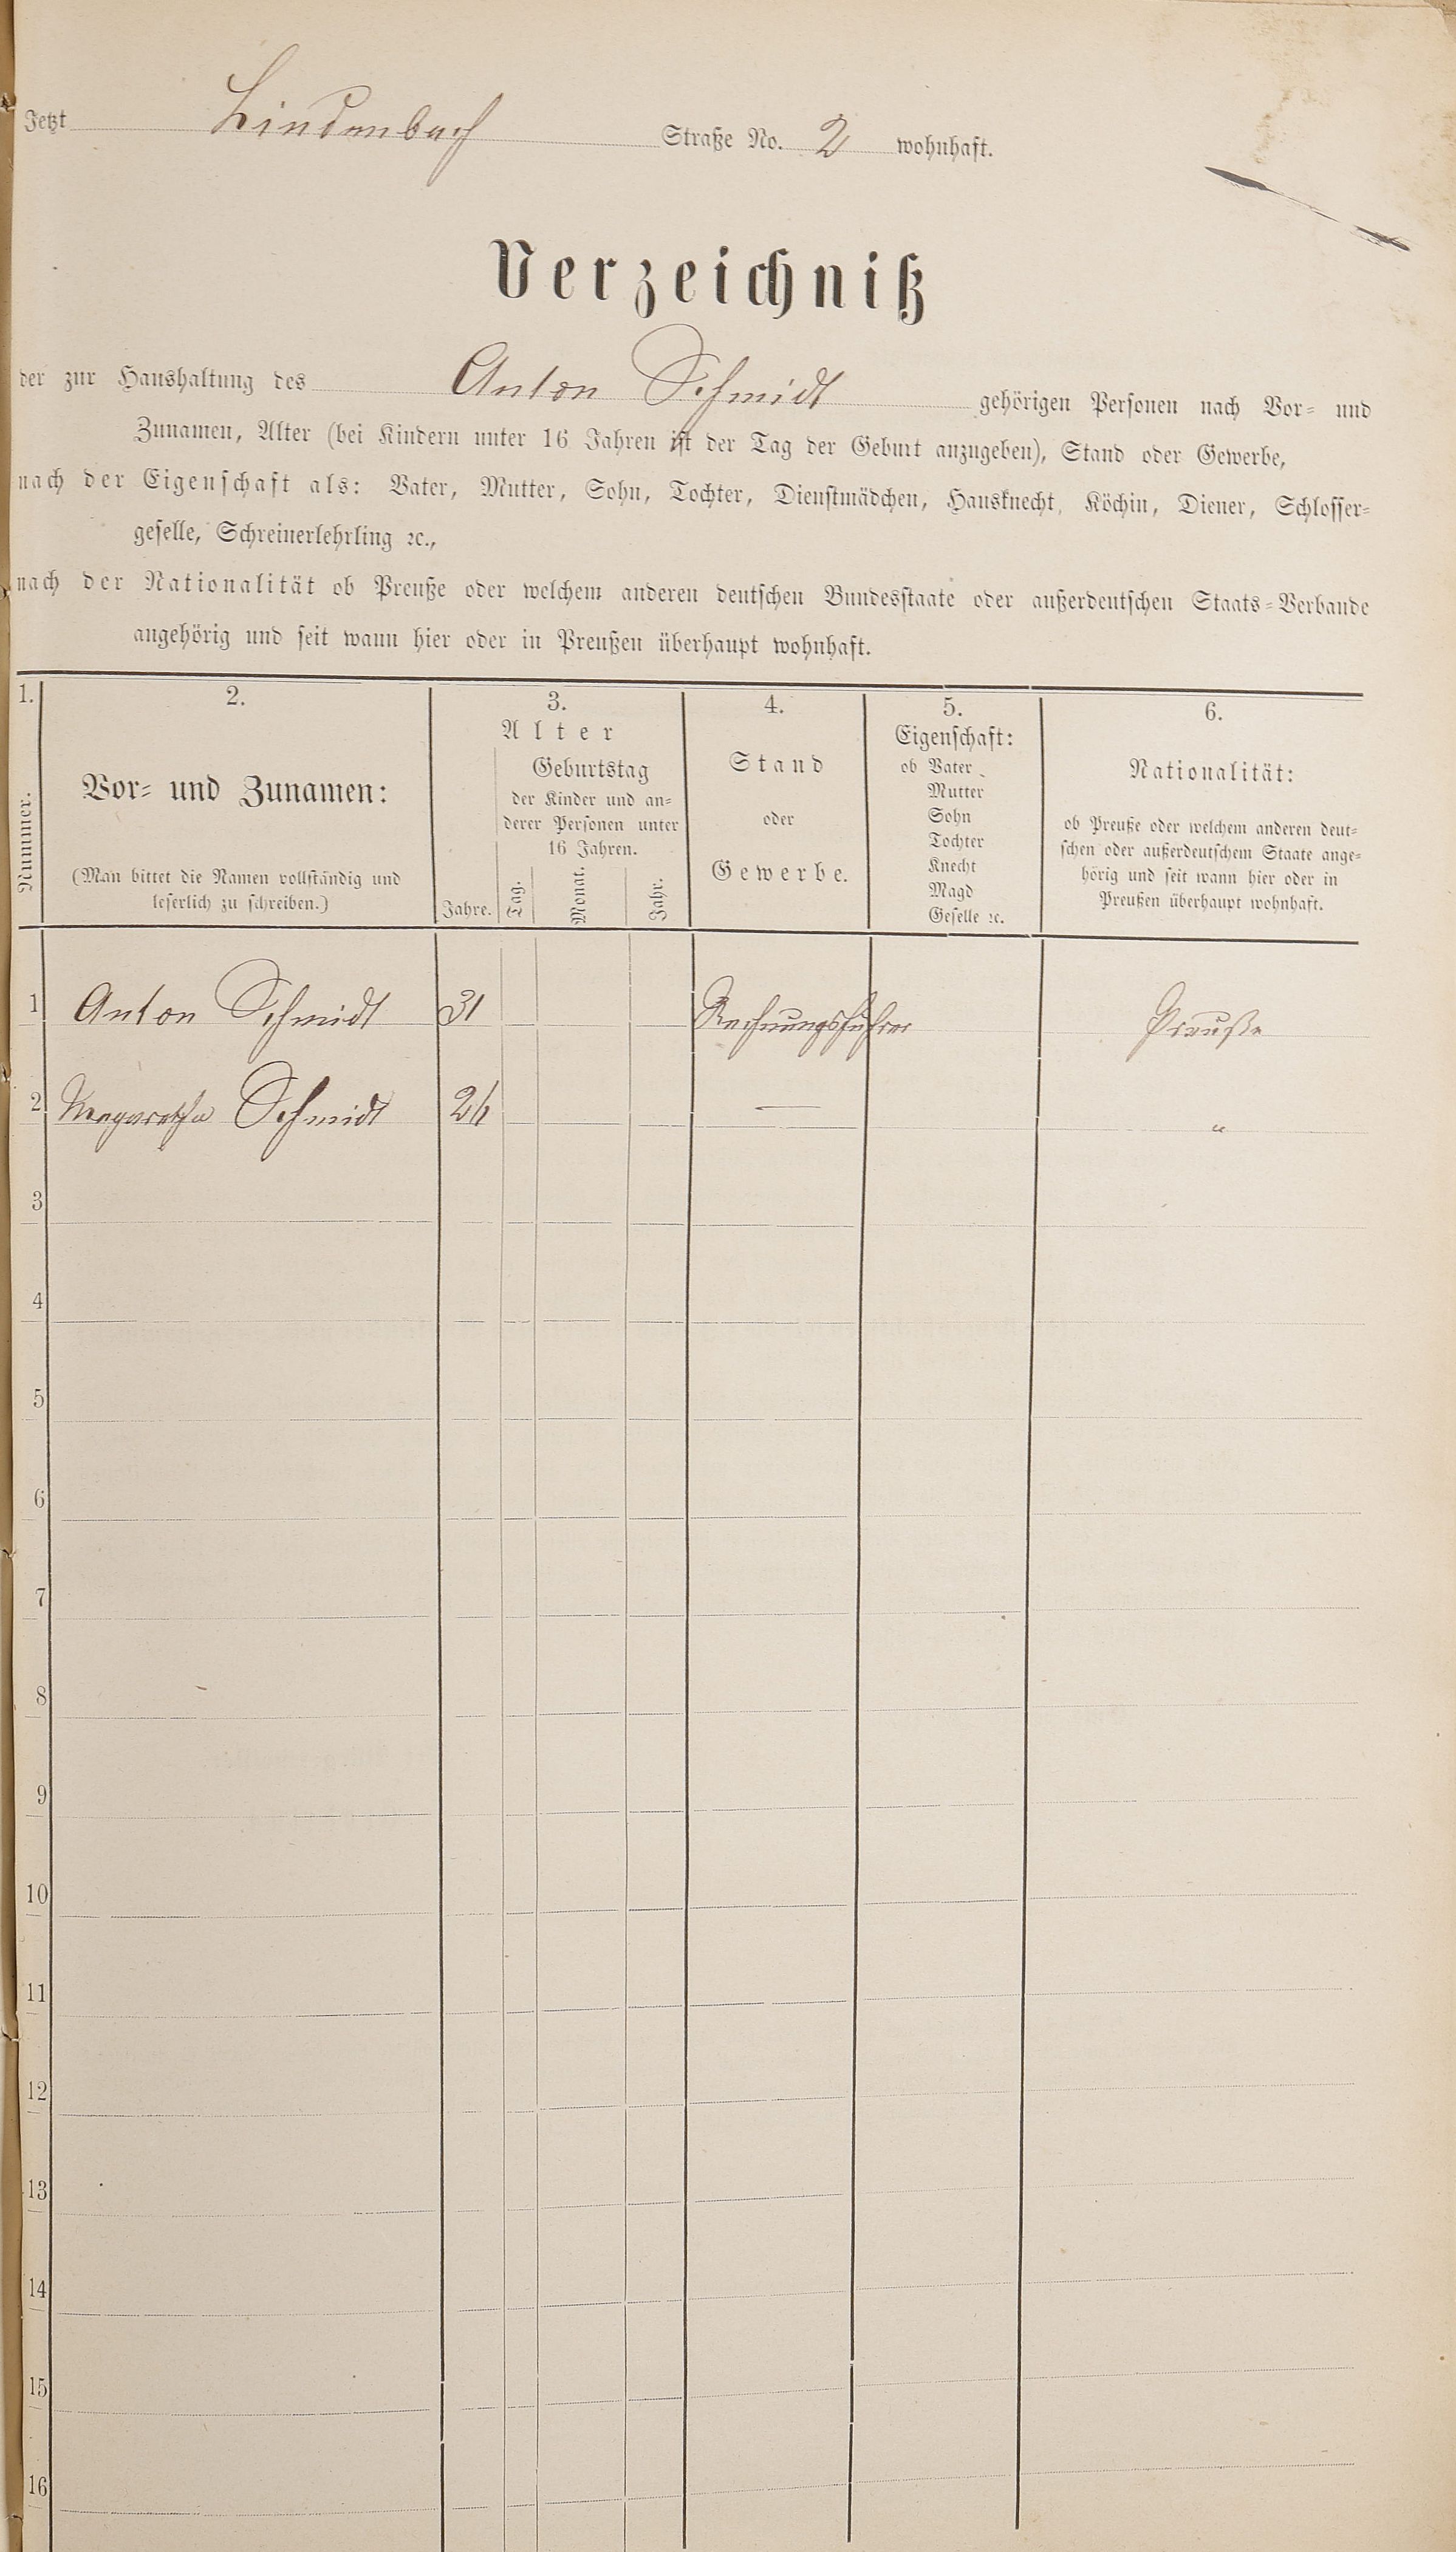 Jetzt Lindenbach Straße No. 2 wohnhaft.
Verzeichniß
der zur Haushaltung des Anton Schmidt gehörigen Personen nach Vor= und
Zunamen, Alter (bei Kindern unter 16 Jahren ist der Tag der Geburt anzugeben), Stand oder Gewerbe,
nach der Eigenschaft als: Vater, Mutter, Sohn, Tochter, Dienstmädchen, Hausknecht, Köchin, Diener, Schlosser=
geselle, Schreinerlehrling ꝛc.,
nach der Nationalität ob Preuße oder welchem anderen deutschen Bundesstaate oder außerdeutschen Staats=Verbande
angehörig und seit wann hier oder in Preußen überhaupt wohnhaft.
1.
Nummer.
2.
Vor= und Zunamen:
(Man bittet die Namen vollständig und
leserlich zu schreiben.)
3.
Alter
Geburtstag
der Kinder und an=
derer Personen unter
16 Jahren.
Jahre. Tag. Monat. Jahr.
4.
Stand
oder
Gewerbe.
5.
Eigenschaft:
ob Vater
Mutter
Sohn
Tochter
Knecht
Magd
Geselle ꝛc.
6.
Nationalität:
ob Preuße oder welchem anderen deut=
schen oder außerdeutschem Staate ange=
hörig und seit wann hier oder in
Preußen überhaupt wohnhaft.
1 Anton Schmidt 31 Rechnungsführer Preuße
2 Magaretha Schmidt 26 — "
3
4
5
6
7
8
9
10
11
12
13
14
15
16